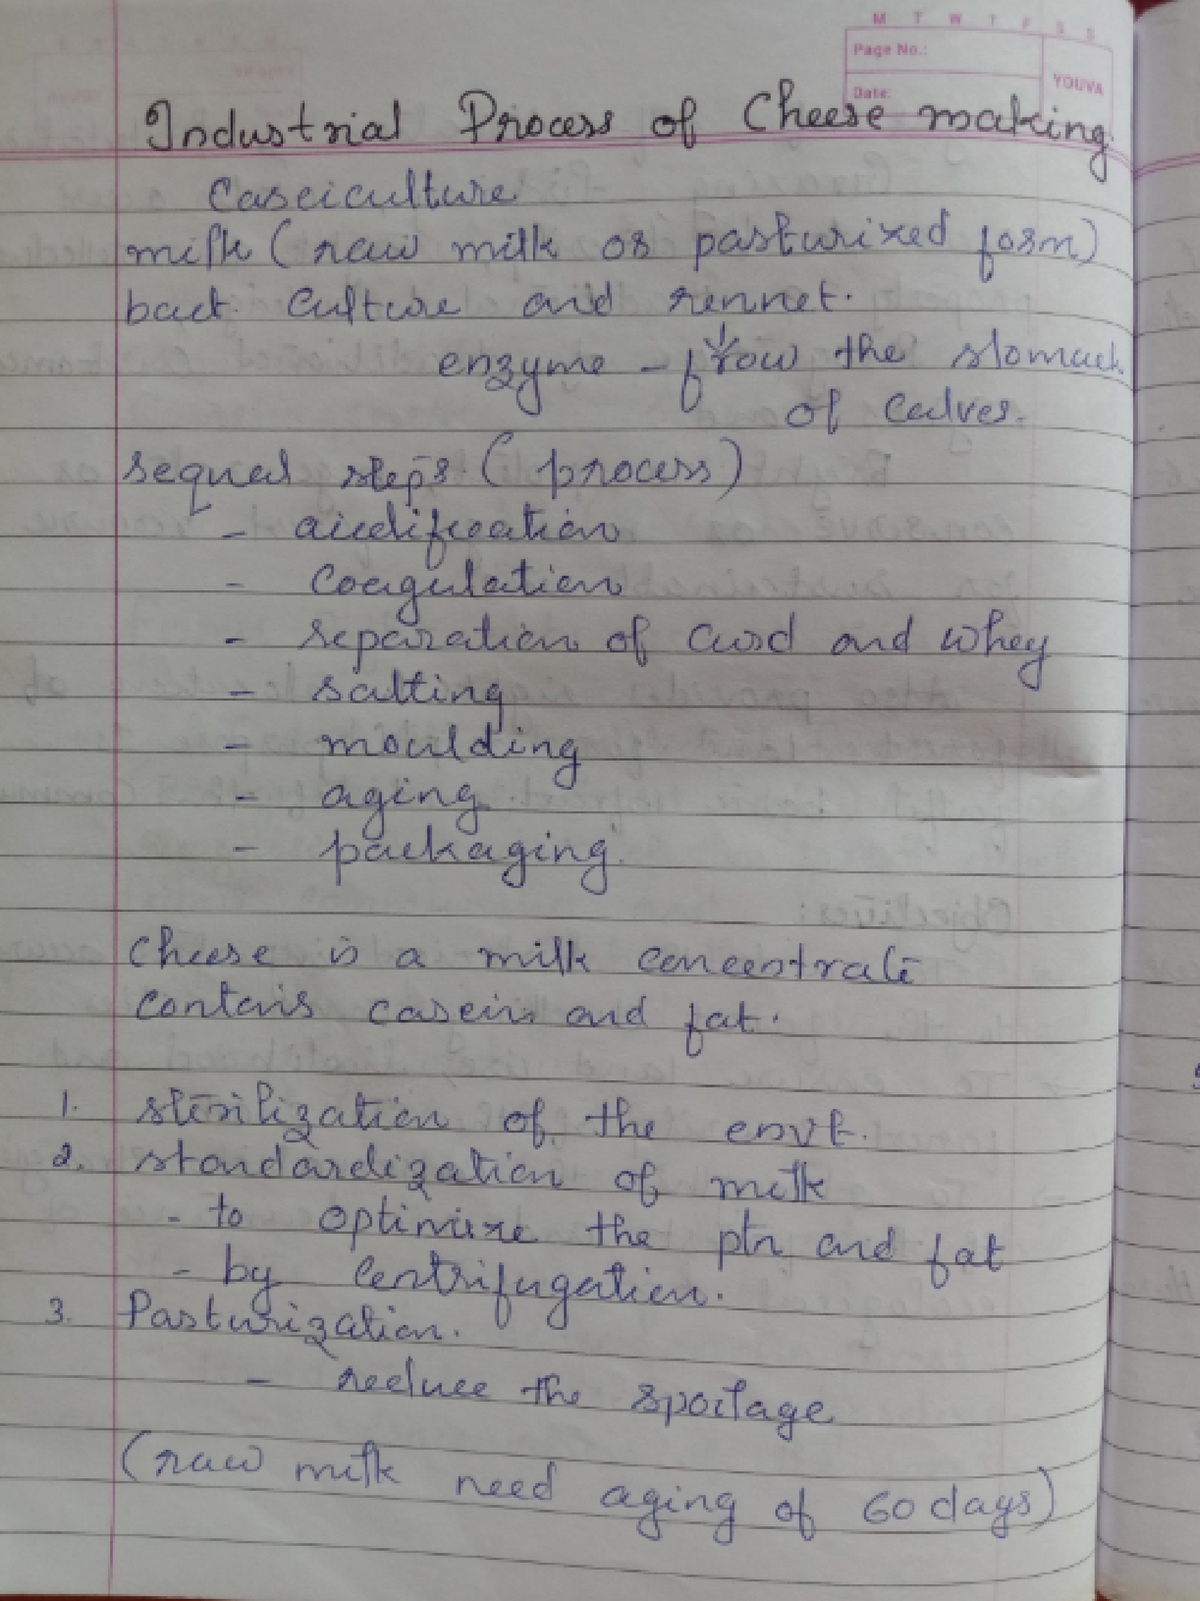 M T W T F S S
Page No.:
YOUVA
Date:
Industrial Process of Cheese making.
Caseiculture
milk (raw milk or pasturized form)
bact. culture and rennet.
enzyme - from the stomach
of calves.
sequel steps (process)
- acidification
- coagulation
- separation of curd and whey
- salting
- moulding
- aging
- packaging.
cheese is a milk concentrate
contains casein and fat.
1. sterilization of the envt.
2. standardization of milk
- to optimize the ptn and fat
- by centrifugation.
3. Pasturization.
- reduce the spoilage
(raw milk need aging of 60 days)